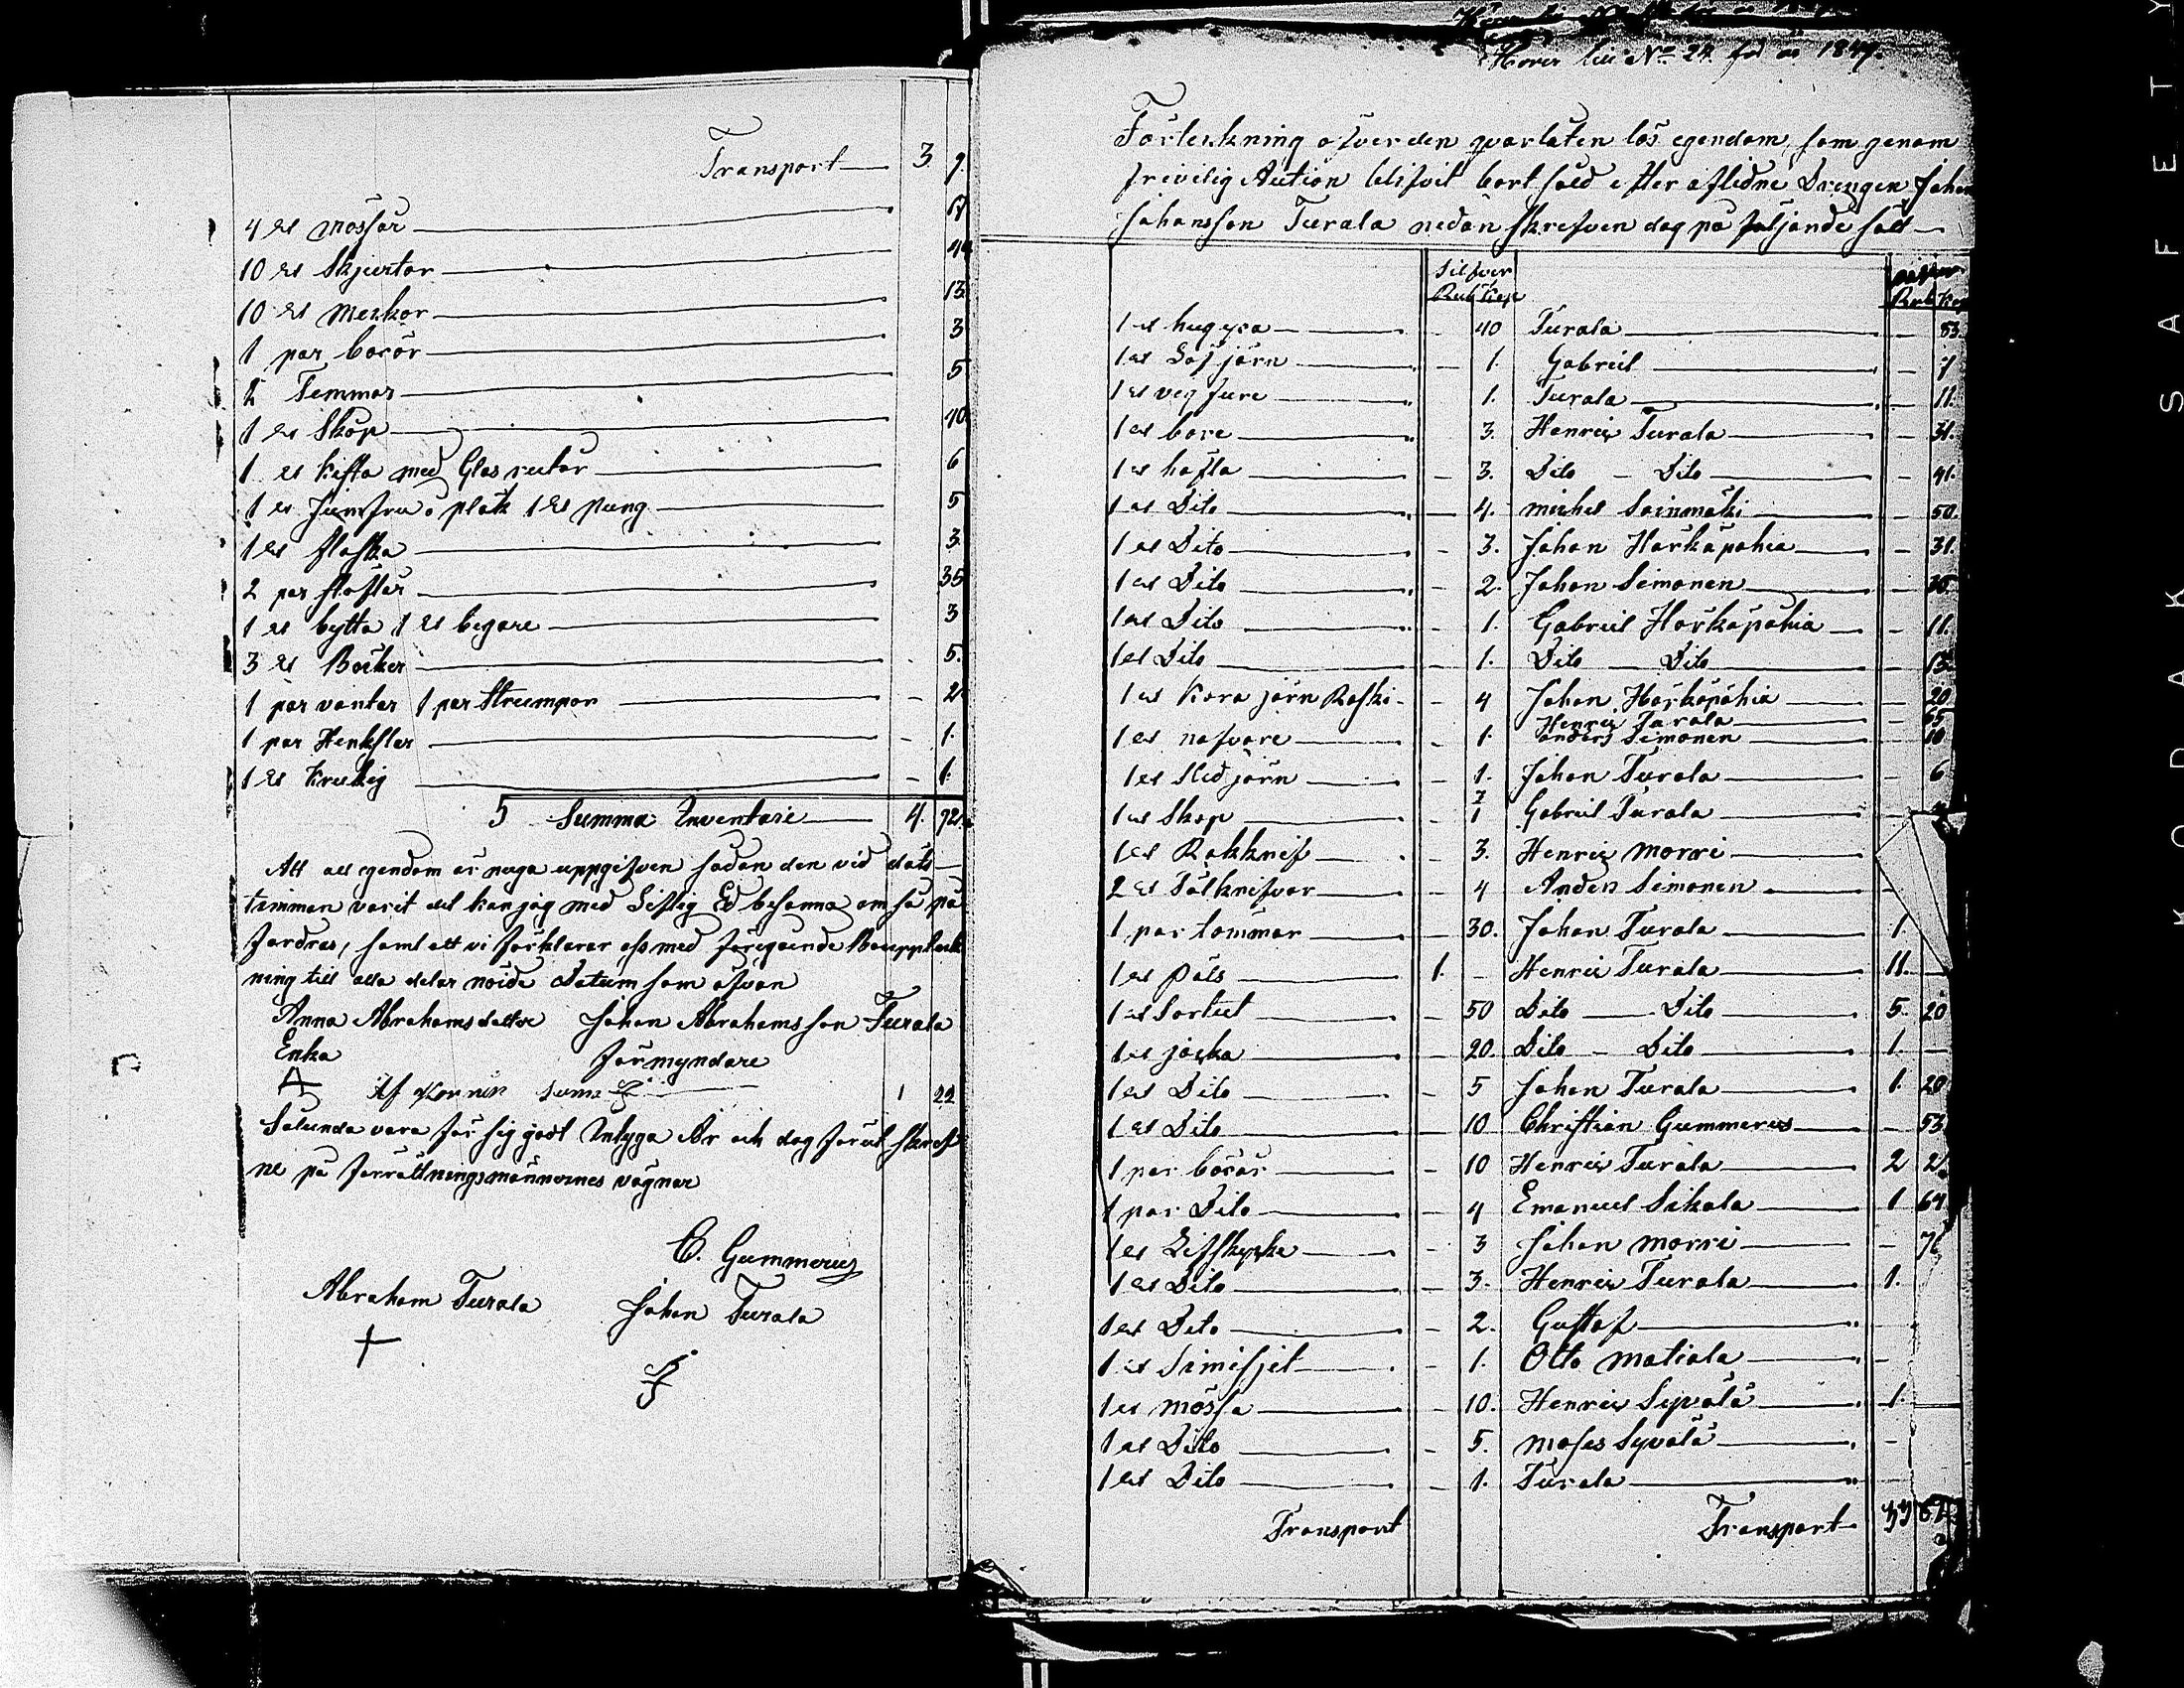 Transport 3 9.
4 st mössor 17
10 st Skjortor 44
10 st merkor 13
1 par boxör 3
2 Temmar 5
1 st Skop 10
1 st kista med Glas rutor 6
1 st Jumfru o plåt 1 st pung 5
1 st flaska 3
2 par stöflar 35
1 st bytta 1 st begare 3
3 st Böcker 5.
1 par vantar 1 par Strumpor - 2
1 par Henksler - 1.
1 st Krukig - 1.
5 Summa Inventarie 4. 72.
Att all egendom är noga uppgifven sådan den vid döds
timman varit det kan jag med Liflig Ed besanna om så på
fordras, samt att vi förklarar oss med föregående Bouppteck
ning till alla delar nöide Datum som ofvan
Anna Abrahamsdotter Johan Abrahamsson Turala
Enka förmyndare
Af summa 1 22
Sålunda vara för sig godt Intyga År och dag förut skref
ne på förrättningsmännernes vägnar
C. Gummerus
Abraham Turala Johan Turala
Hörer till No 24 för år 1847.
Förteckning öfver den qvarlåten lös egendom, som genom
frivilig Aution blifvit bort såld efter aflidne Drengen Johan
Johansson Turala nedan skrefven dag på följande sätt
Silfver
Rub Kop Rub Kop
1 st hug yxa - 40 Turala - 53.
1 st Löf jörn - 1. Gabriel - 7
1 st veg fure 1. Turala - 11.
1 st bore 3. Henric Turala - 31.
1 st hafla - 3. Dito - Dito - 41.
1 st Dito - 4. michel Sainmäki - 50.
1 st Dito - 3. Johan Härkäpähia - 31.
1 st Dito - 2. Johan Simonen - 35.
1 st Dito - 1. Gabriel Härkäpähia - 11.
1 st Dito 1. Dito Dito 13.
1 st Kora jörn Raski - 4 Johan Härkäpähia 20
Henric Turala - 65
1 st nafvare - 1. Anders Simonen 10
1 st Sted jörn - 1. Johan Turala - 6
1 st Skop 1 Gabriel Turala
1 st Rakknif - 3. Henric morri
2 st Tälknifvar 4 Anders Simonen -
1 par tömmar 30. Johan Turala 1.
1 st päls 1. - Henric Turala 11. -
1 st Sortut - 50 Dito Dito 5. 20
1 st jacka - 20. Dito - Dito 1. -
1 st Dito - 5 Johan Turala 1. 20
1 st Dito - 10 Christian Gummerus - 53
1 par böxor - 10 Henric Turala 2 2.
1 par Dito - 4 Emanuel Sikala 1 64
1 st Lifstycke - 3 Johan morri - 76
1 st Dito - 3. Henric Turala 1.
1 st Dito - 2. Gustaf
1 st - 1. Otto matiala -
1 st mössa - 10. Henric Sypälä 1.
1 st Dito - 5. moses Sypälä -
1 st Dito - 1. Turala
Transport Transport 33